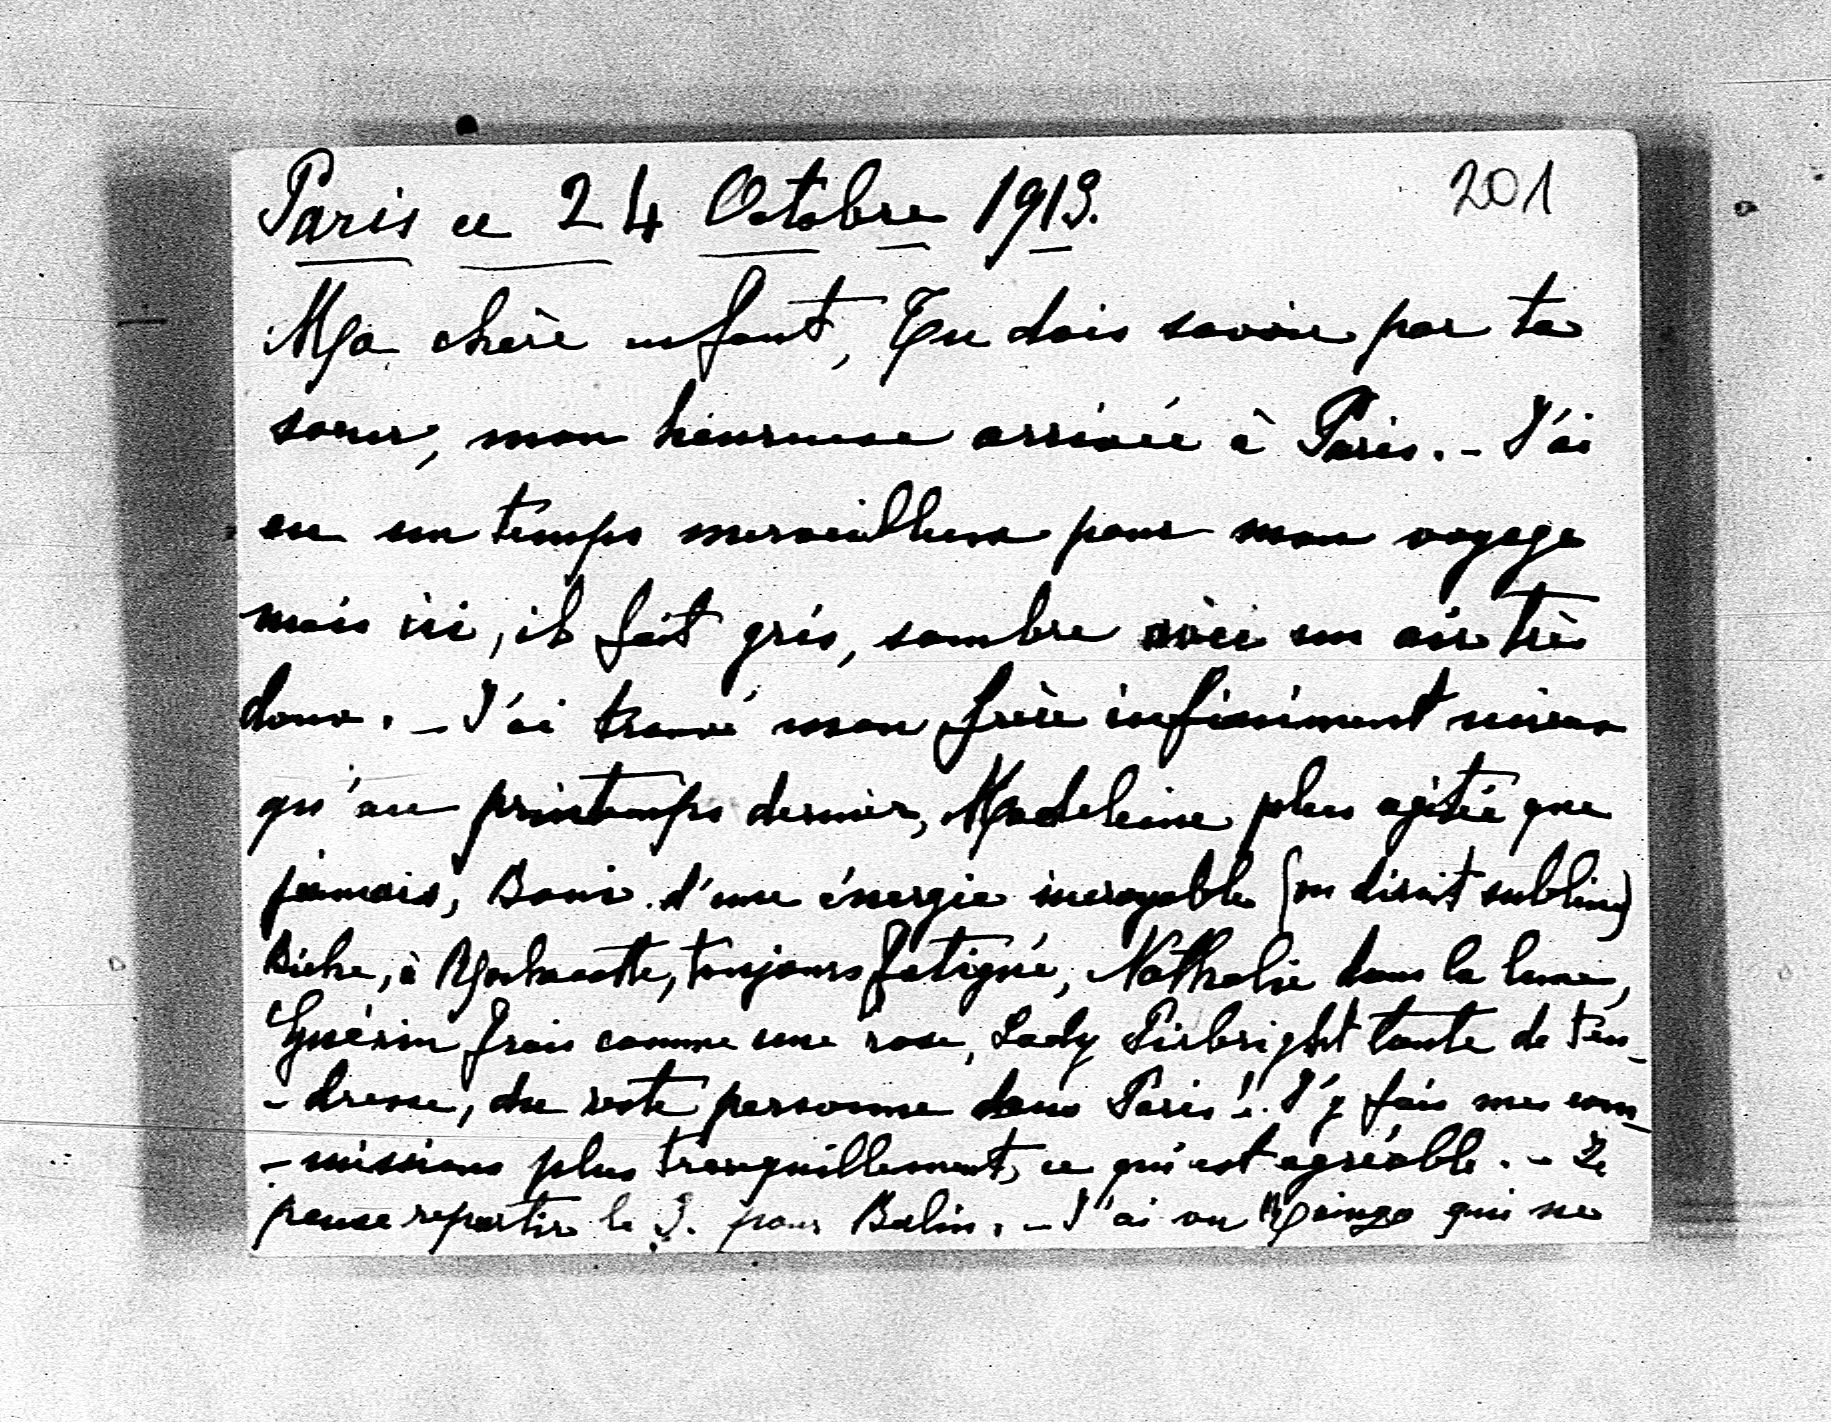 201
Paris ce 24 Octobre 1913.
Ma chère enfant, Tu dois savoir par ta
sœur, mon heureuse arrivée à Paris. - J'ai
eu un temps merveilleux pour mon voyage
mais ici, il fait gris, sombre avec un air très
doux. - J'ai trouvé mon frère infiniment mieux
qu'au printemps dernier, Madeleine plus agitée que
jamais, Boni d'une énergie incroyable (on dirait sublime)
Biche, à toujours fatigué, Nathalie dans la lune,
Guérin frais comme une rose, Lady Pirbright toute de ten-
- dresse, du reste personne dans Paris!. J'y fais mes com-
- missions plus tranquillement, ce qui est agréable. - Je
pense repartir le 3. pour Berlin. - J'ai vu qui ne